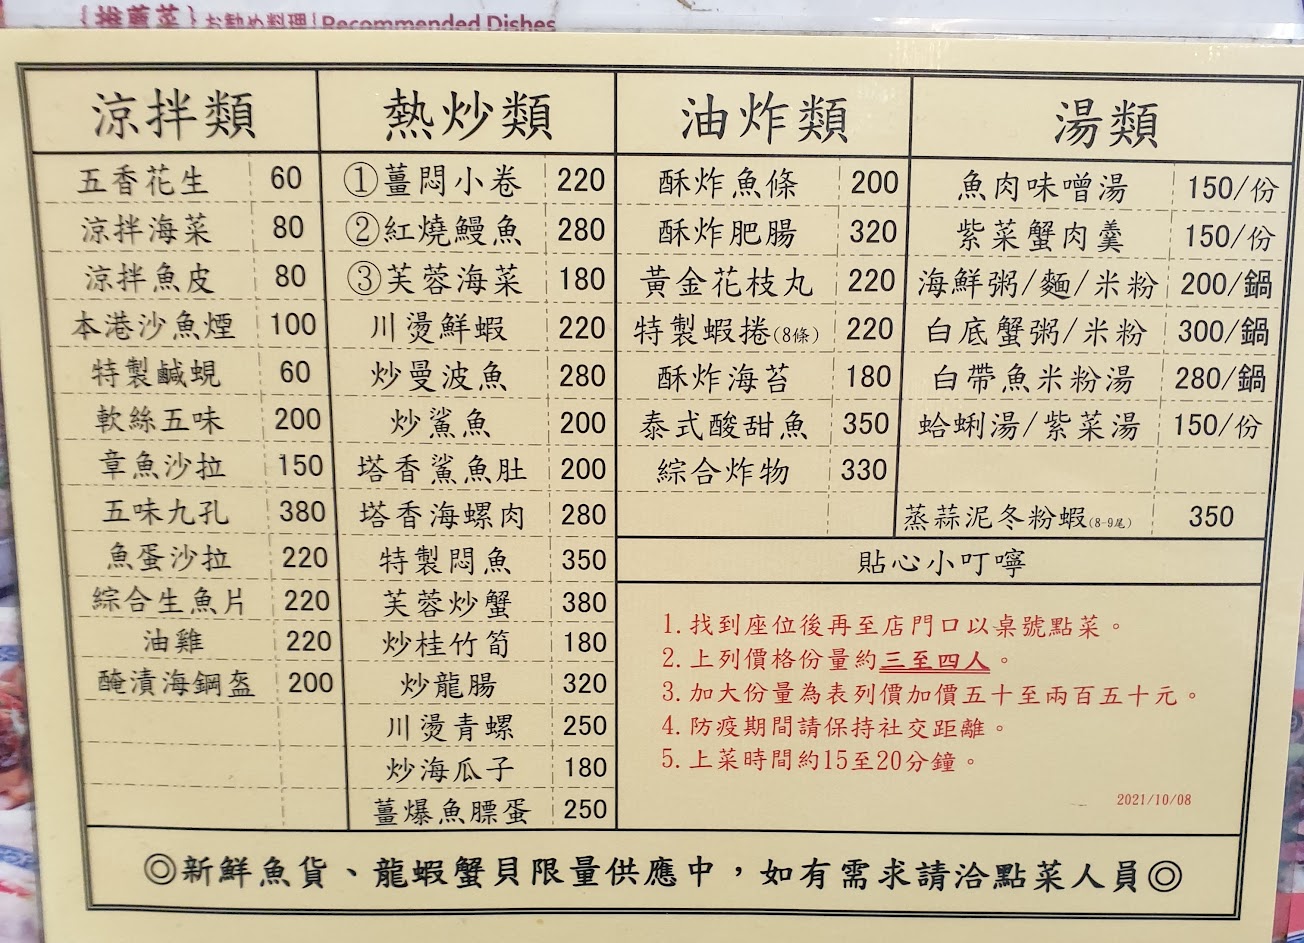 {推薦菜} お勧め料理 | Recommended Dishes
涼拌類
五香花生 60
涼拌海菜 80
涼拌魚皮 80
本港沙魚煙 100
特製鹹蜆 60
軟絲五味 200
章魚沙拉 150
五味九孔 380
魚蛋沙拉 220
綜合生魚片 220
油雞 220
醃漬海鋼盔 200
熱炒類
①薑悶小卷 220
②紅燒鰻魚 280
③芙蓉海菜 180
川燙鮮蝦 220
炒曼波魚 280
炒鯊魚 200
塔香鯊魚肚 200
塔香海螺肉 280
特製悶魚 350
芙蓉炒蟹 380
炒桂竹筍 180
炒龍腸 320
川燙青螺 250
炒海瓜子 180
薑爆魚膘蛋 250
油炸類
酥炸魚條 200
酥炸肥腸 320
黃金花枝丸 220
特製蝦捲(8條) 220
酥炸海苔 180
泰式酸甜魚 350
綜合炸物 330
湯類
魚肉味噌湯 150/份
紫菜蟹肉羹 150/份
海鮮粥/麵/米粉 200/鍋
白底蟹粥/米粉 300/鍋
白帶魚米粉湯 280/鍋
蛤蜊湯/紫菜湯 150/份
蒸蒜泥冬粉蝦(8-9尾) 350
貼心小叮嚀
1.找到座位後再至店門口以桌號點菜。
2.上列價格份量約三至四人。
3.加大份量為表列價加價五十至兩百五十元。
4.防疫期間請保持社交距離。
5.上菜時間約15至20分鐘。
2021/10/08
◎新鮮魚貨、龍蝦蟹貝限量供應中，如有需求請洽點菜人員◎